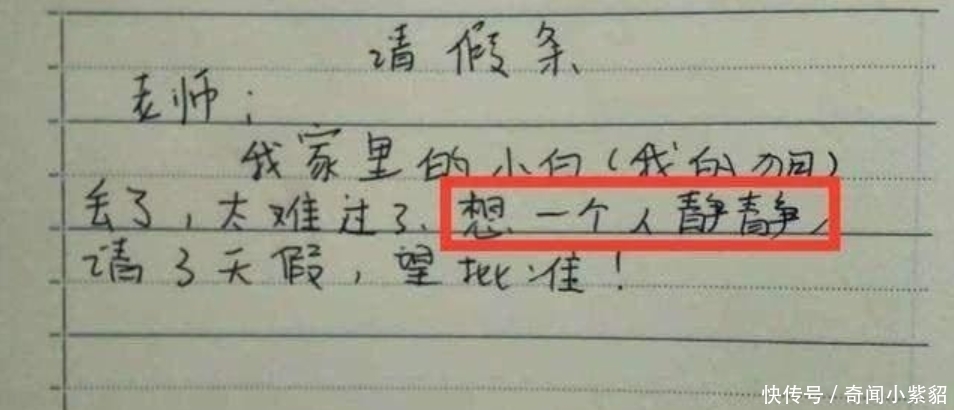 请假条
老师:
我家里的小白(我的狗)
丢了,太难过了、想一个人静静,
请3天假,望批准!
快传号/奇闻小紫貂